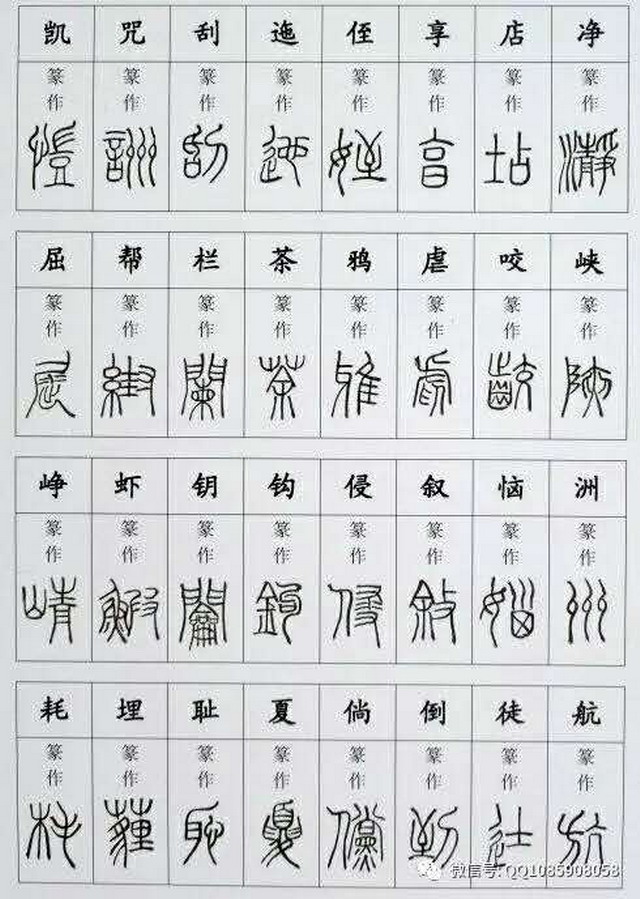 凯 咒 刮 迤 侄 享 店 净
篆 篆 篆 篆 篆 篆 篆 篆
作 作 作 作 作 作 作 作
愷 詶 刮 姪 坫 瀞
屈 帮 栏 茶 鸦 虐 咬 峡
篆 篆 篆 篆 篆 篆 篆 篆
作 作 作 作 作 作 作 作
闌 荼 雅 虐
峥 虾 钥 钩 侵 叙 恼 洲
篆 篆 篆 篆 篆 篆 篆 篆
作 作 作 作 作 作 作 作
崝 鰕 鉤 侵 敘 州
耗 埋 耻 夏 倘 倒 徒 航
篆 篆 篆 篆 篆 篆 篆 篆
作 作 作 作 作 作 作 作
薶 恥 儻 到
微信号: QQ1085908058